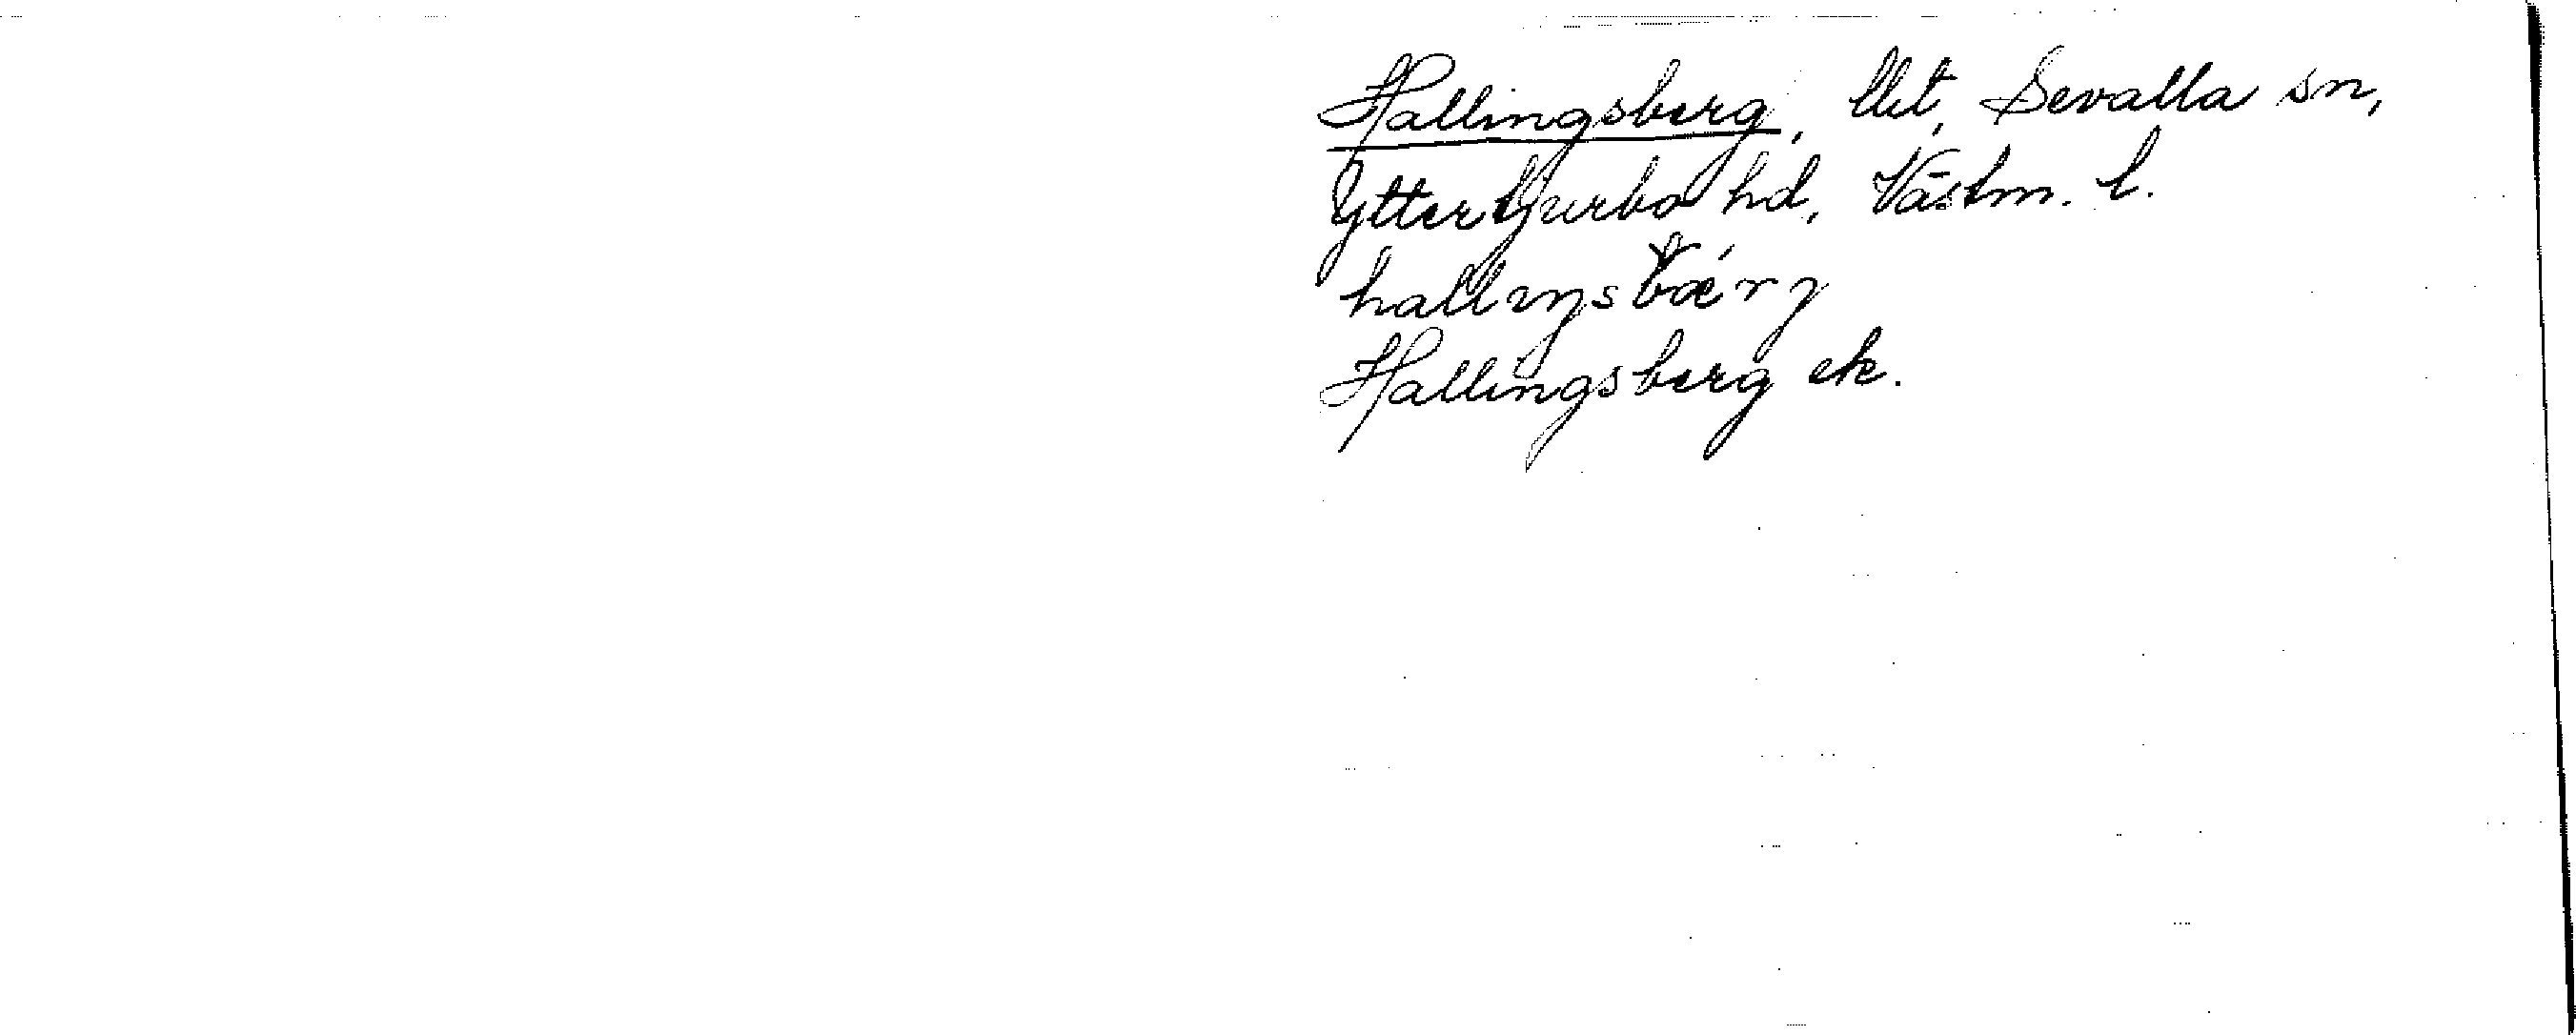 Hallingsberg, llht, Sevalla sn,
Yttertjurbo hd, Västm. l.
hallıŋsbǽrj
Hallingsberg ek.